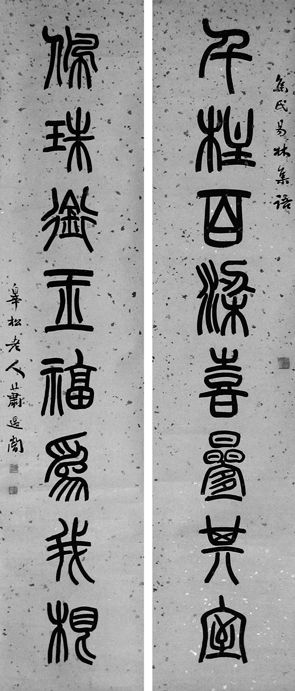 焦氏易林集語
千柱百梁喜疊其室
佩珠銜玉福爲我根
皋松老人蕭退闇